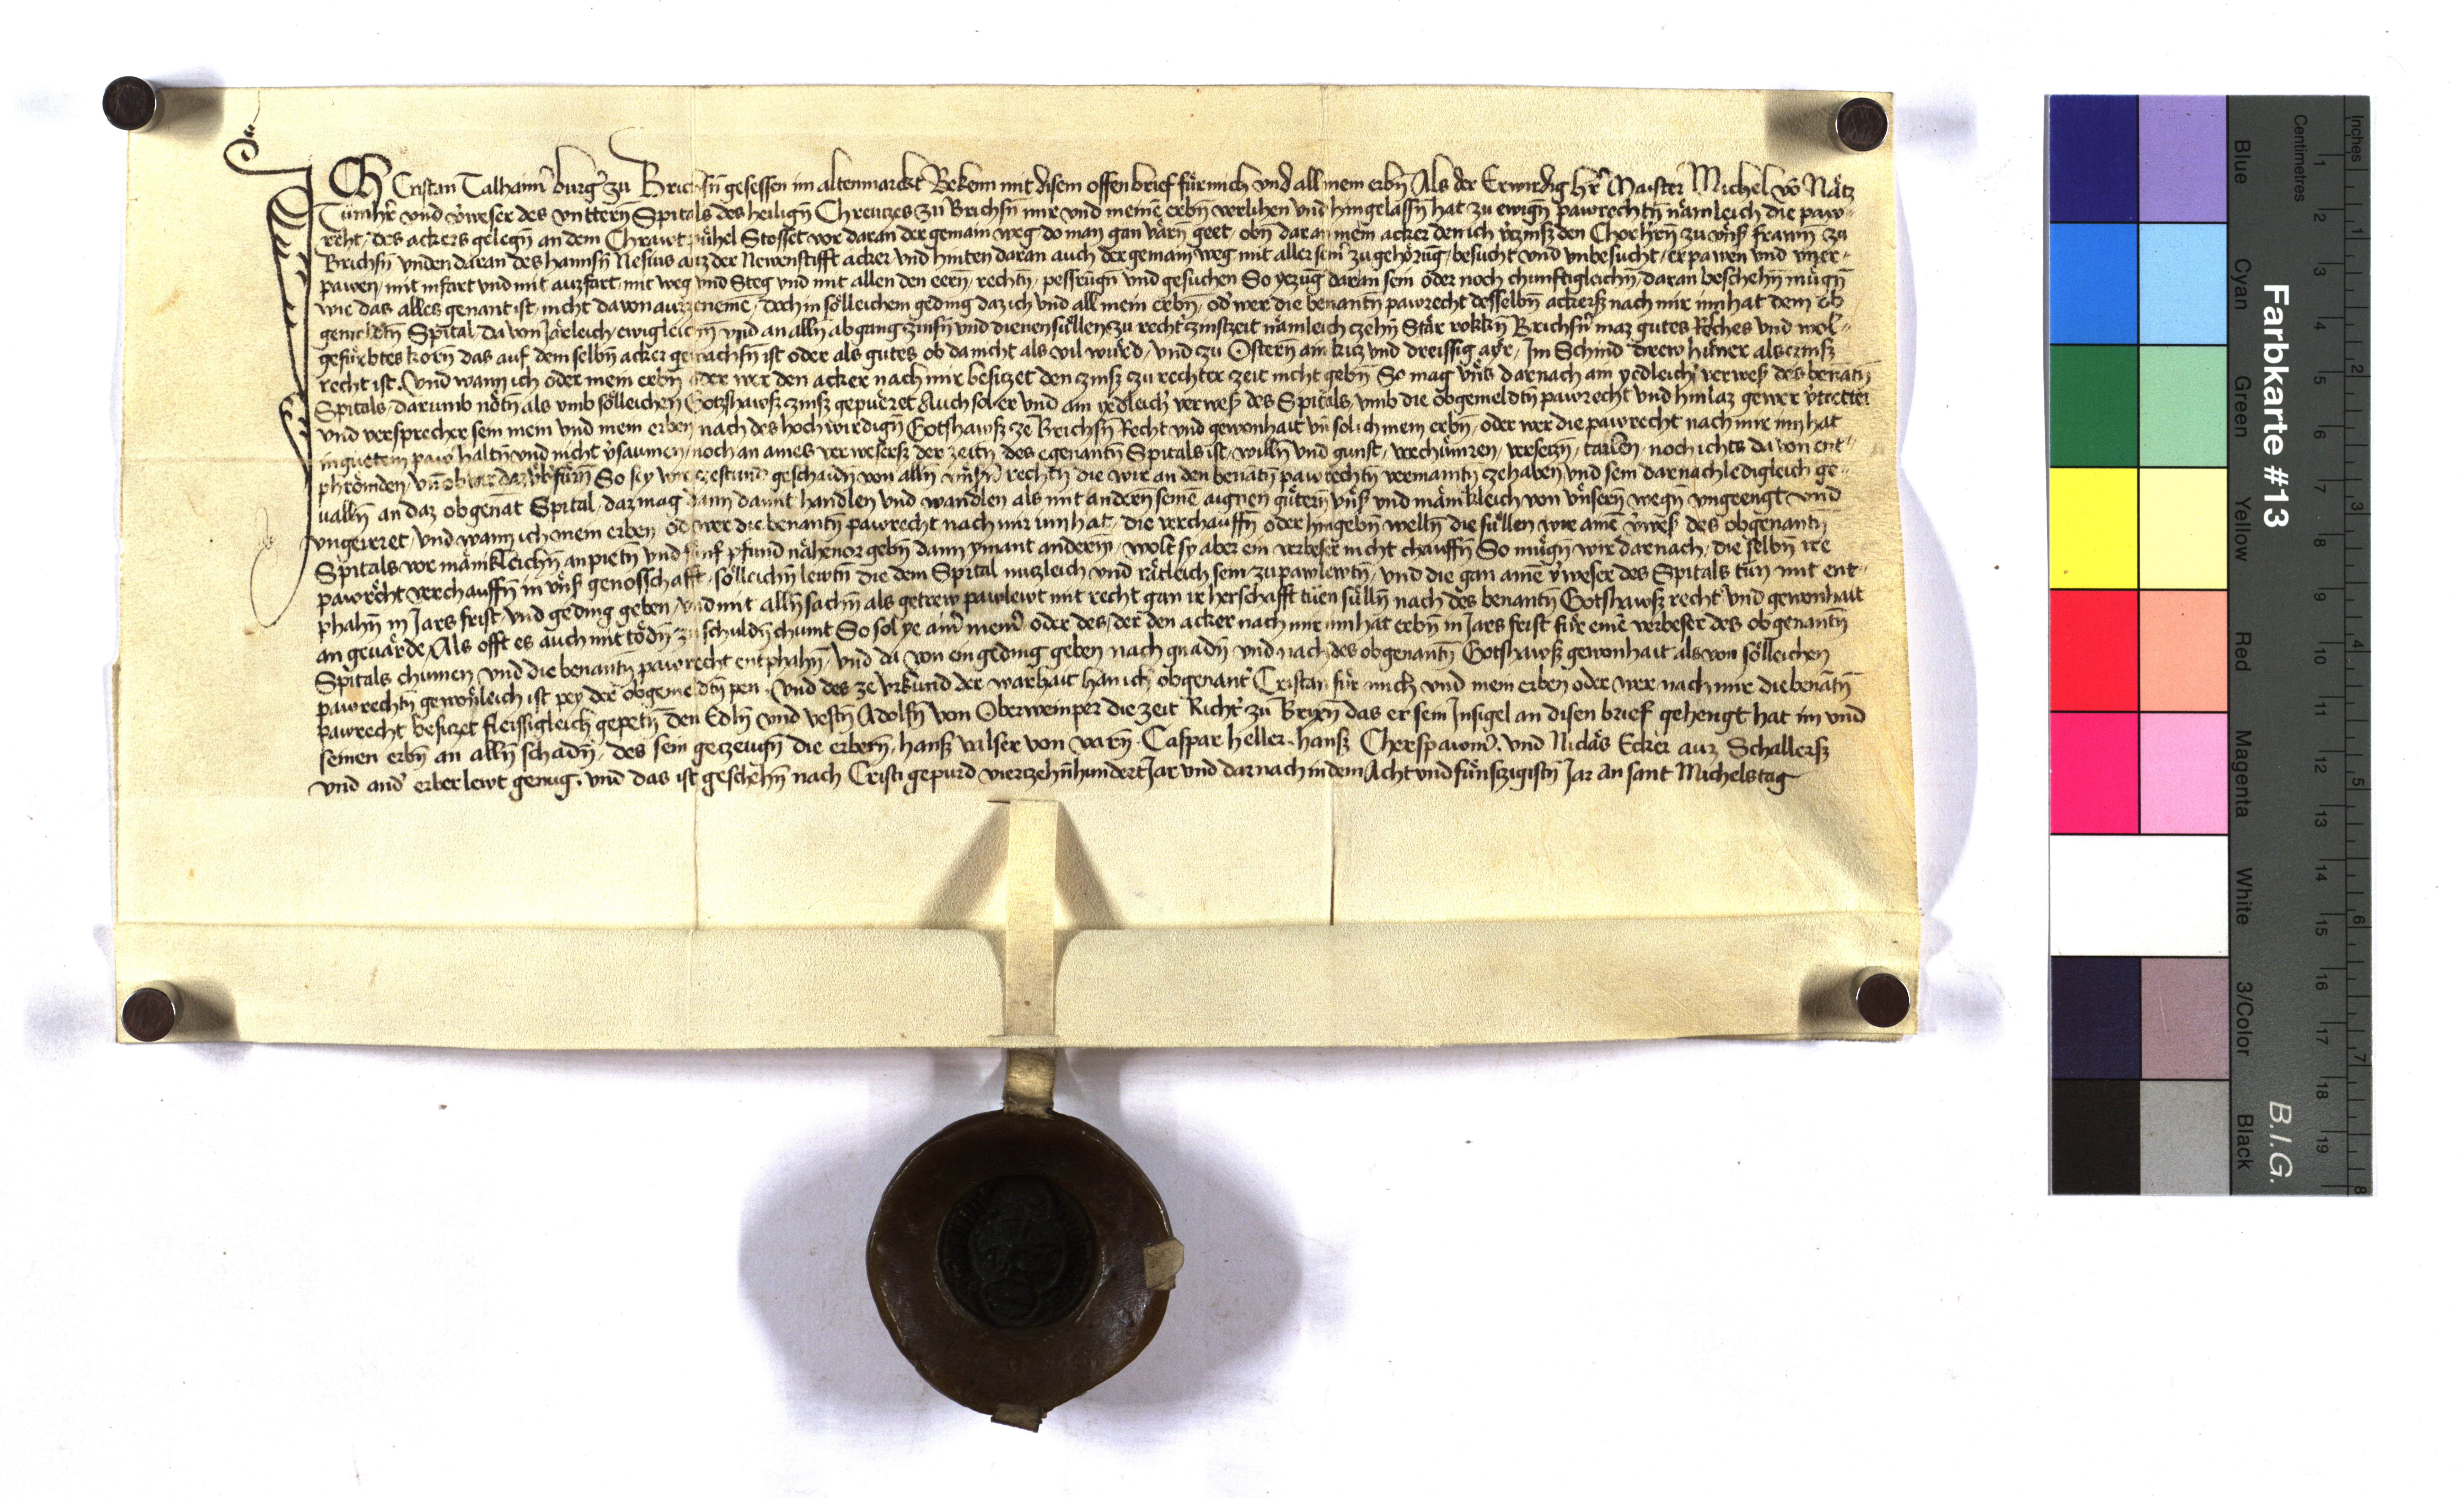 Ich Cristan Talhaimer burger zu Brichsn̄ gesessen im altenmarckt Bekenn mit disem offen brief für mich vnd all mein erbn̄ Als der Erwirdig her Maister Michel vō Nätz
Tůmher vnd v'weser des vnttern̄ Spitals des heilign̄ Chreutzes zu Brichsn̄ mir vnd meinē erbn̄ verlihen vnd hingelassn̄ hat zu ewign̄ pawrechtn̄ nämleich die paw-
recht des ackers gelegn̄ an dem Chrawtpühel Stosset vor daran der gemain weg do man gan Varn geet, obn̄ daran mein acker den ich v'zinß den Chorhern̄ zu vnß frawn̄ zu
Brichsn̄ vnden daran des hannsn̄ Nesius auz der Newenstifft acker vnd hinten daran auch der gemain weg mit aller seinr' zugehörūg, besucht vnd vnbesucht, erpawen vnd vner-
pawen, mit infart vnd mit auzfart, mit weg vnd Steg vnd mit allen den eern̄, rechtn̄, pessrūgn̄ vnd gesuchen So yezūg daran sein oder noch chunftigleichn̄ daran beschehn̄ mügn̄
wie das alles genant ist, nicht dauon auzzenemē, doch in sölleichem geding daz ich vnd all mein erbn̄, od' wer die benantn̄ pawrecht desselbn̄ ackerß nach mir innhat dem ob
gemeldtn̄ Spital da von järleich ewigleichn̄ vnd an alln̄ abgang zinsn̄ vnd dienen süllen zu recht' zinstzeit nämleich zehn̄ Stär rokkn̄ Brichsn̄' maz gutes Reches vnd wol-
gefürbtes korn das auf dem selbn̄ acker gewachsn̄ ist oder als gutes ob da nicht als vil würd, vnd zu Ostern̄ ain kitz vnd dreissig ayr, Im Schnid drew hüner als czinß
recht ist. Vnd wann ich oder mein erbn̄ oder wer den acker nach mir besitzet den zinß zu rechter zeit nicht gebn̄ So mag vns darnach ain yedleich' verweß des benātn̄
Spitals, darumb nötn̄ als vmb sölleichen Gotzhawß zinß gepüret Auch sol er vnd ain yedleich' verweß des Spitals, vmb die obgemeldtn̄ pawrecht vnd hinlaz gewer v'tretter
vnd versprecher sein mein vnd mein erben nach des hochwirdign̄ Gotshawß ze Brichsn̄ Recht vnd gewonhait vn̄ sol ich mein erbn̄, oder wer die pawrecht nach mir inn hat
in gůtem paw haltn̄ vnd nicht v'saumen, noch an aines verweserß der zeitn̄ des egenantn̄ Spitals ist, willn̄ vnd gunst, verchümren, versetzn̄, tailen, noch ichts da von ent-
phrömden, vn̄ ob wir daz v'b'fürn̄ So sey wir zestund geschaidn̄ von alln̄ vnsn̄ rechtn̄ die wir an den benātn̄ pawrechtn̄ vermaintn̄ ze haben vnd sein darnach ledigleich ge-
ualln̄ an daz obgenāt Spital, daz mag dann damit handlen vnd wandlen als mit andern̄ seinē aignen gütern̄ vnß vnd mänikleich von vnsern̄ wegn̄ vngeengt vnd
vngeirret, Vnd wann ich mein erben, od' wer die benantn̄ pawrecht nach mir innhat, die verchauffn̄ oder hingebn̄ welln̄ die süllen wir ainē v'weß des obgenantn̄
Spitals vor mänikleichn̄ anpietn̄ vnd fünf pfund nähenor gebn̄ dann ymant anderm̄, wolt sy aber ein verbeser nicht chauffn̄ So mügn̄ wir darnach, die selbn̄ ire
pawrecht verchauffn̄ in vnß genosschafft, sölleichn̄ lewtn̄ die dem Spital nutzleich vnd rätleich sein, zu pawlewtn̄, vnd die gan ainē v'weser des Spitals tůn mit ent-
phahn̄ in Jars frist, vnd geding geben vnd mit alln̄ sachn̄ als getrew pawlewt mit recht gan ir herschafft tůen sülln̄ nach des benantn̄ Gotshawß recht vnd gewonhait
an geuärde, Als offt es auch mit tödn̄ zu schuldn̄ chumt So sol ye ainr' meinr' oder des, der den acker nach mir innhat erbn̄ in Jars frist für einē verbeser des obgenantn̄
Spitals chumen vnd die benantn̄ pawrecht entphahn̄, vnd da von ein geding geben nach gnadn̄ vnd nach des obgenantn̄ Gotshawß gewonhait als von sölleichen
pawrechtn̄ gewonleich ist pey der obgemeldtn̄ pen. Vnd des ze vrkund der warhait han ich obgenant' Cristan für mich vnd mein erben oder wer nach mir die benātn̄
pawrecht besitzet fleissigleich gepetn̄ den Edln̄ vnd vestn̄ Adolfn̄ von Oberweinper die zeit Richt' zu Brixn̄ das er sein Insigel an disen brief gehengt hat im vnd
seinen erbn̄ an alln̄ schadn̄, des sein gezeugn̄ die erbern̄, hanß valser von varn̄. Caspar heller. hanß Cherspawm'. vnd Niclas Ecker auz Schallerß
vnd and' erber lewt genug. vnd das ist geschehn̄ nach Cristi gepurd vierzehn̄hundert Jar vnd darnach in dem Acht vnd fünfzigistn̄ Jar an sant Michels tag
Farbkarte #13
B.I.G.
Centimetres
Inches
Blue
Cyan
Green
Yellow
Red
Magenta
White
3/Color
Black
1 2 3 4 5 6 7 8 9 10 11 12 13 14 15 16 17 18 19
1 2 3 4 5 6 7 8